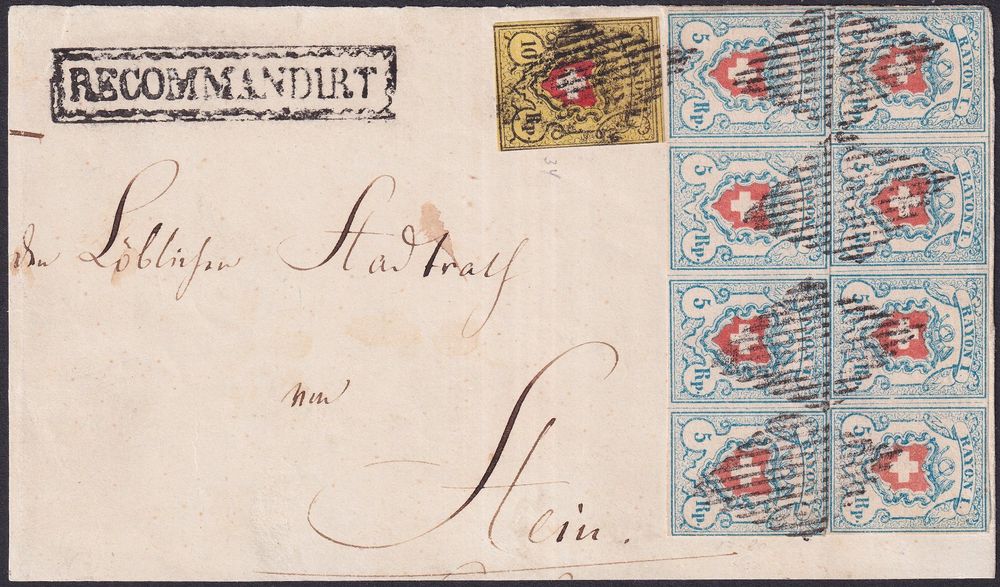 RECOMMANDIRT
10 Rp.
5 Rp. RAYON I.
5 Rp. RAYON I.
5 Rp. RAYON I.
5 Rp. RAYON I.
5 Rp. RAYON I.
5 Rp. RAYON I.
5 Rp. RAYON I.
5 Rp. RAYON I.
Löblichen Stadtrath
von
Stein.